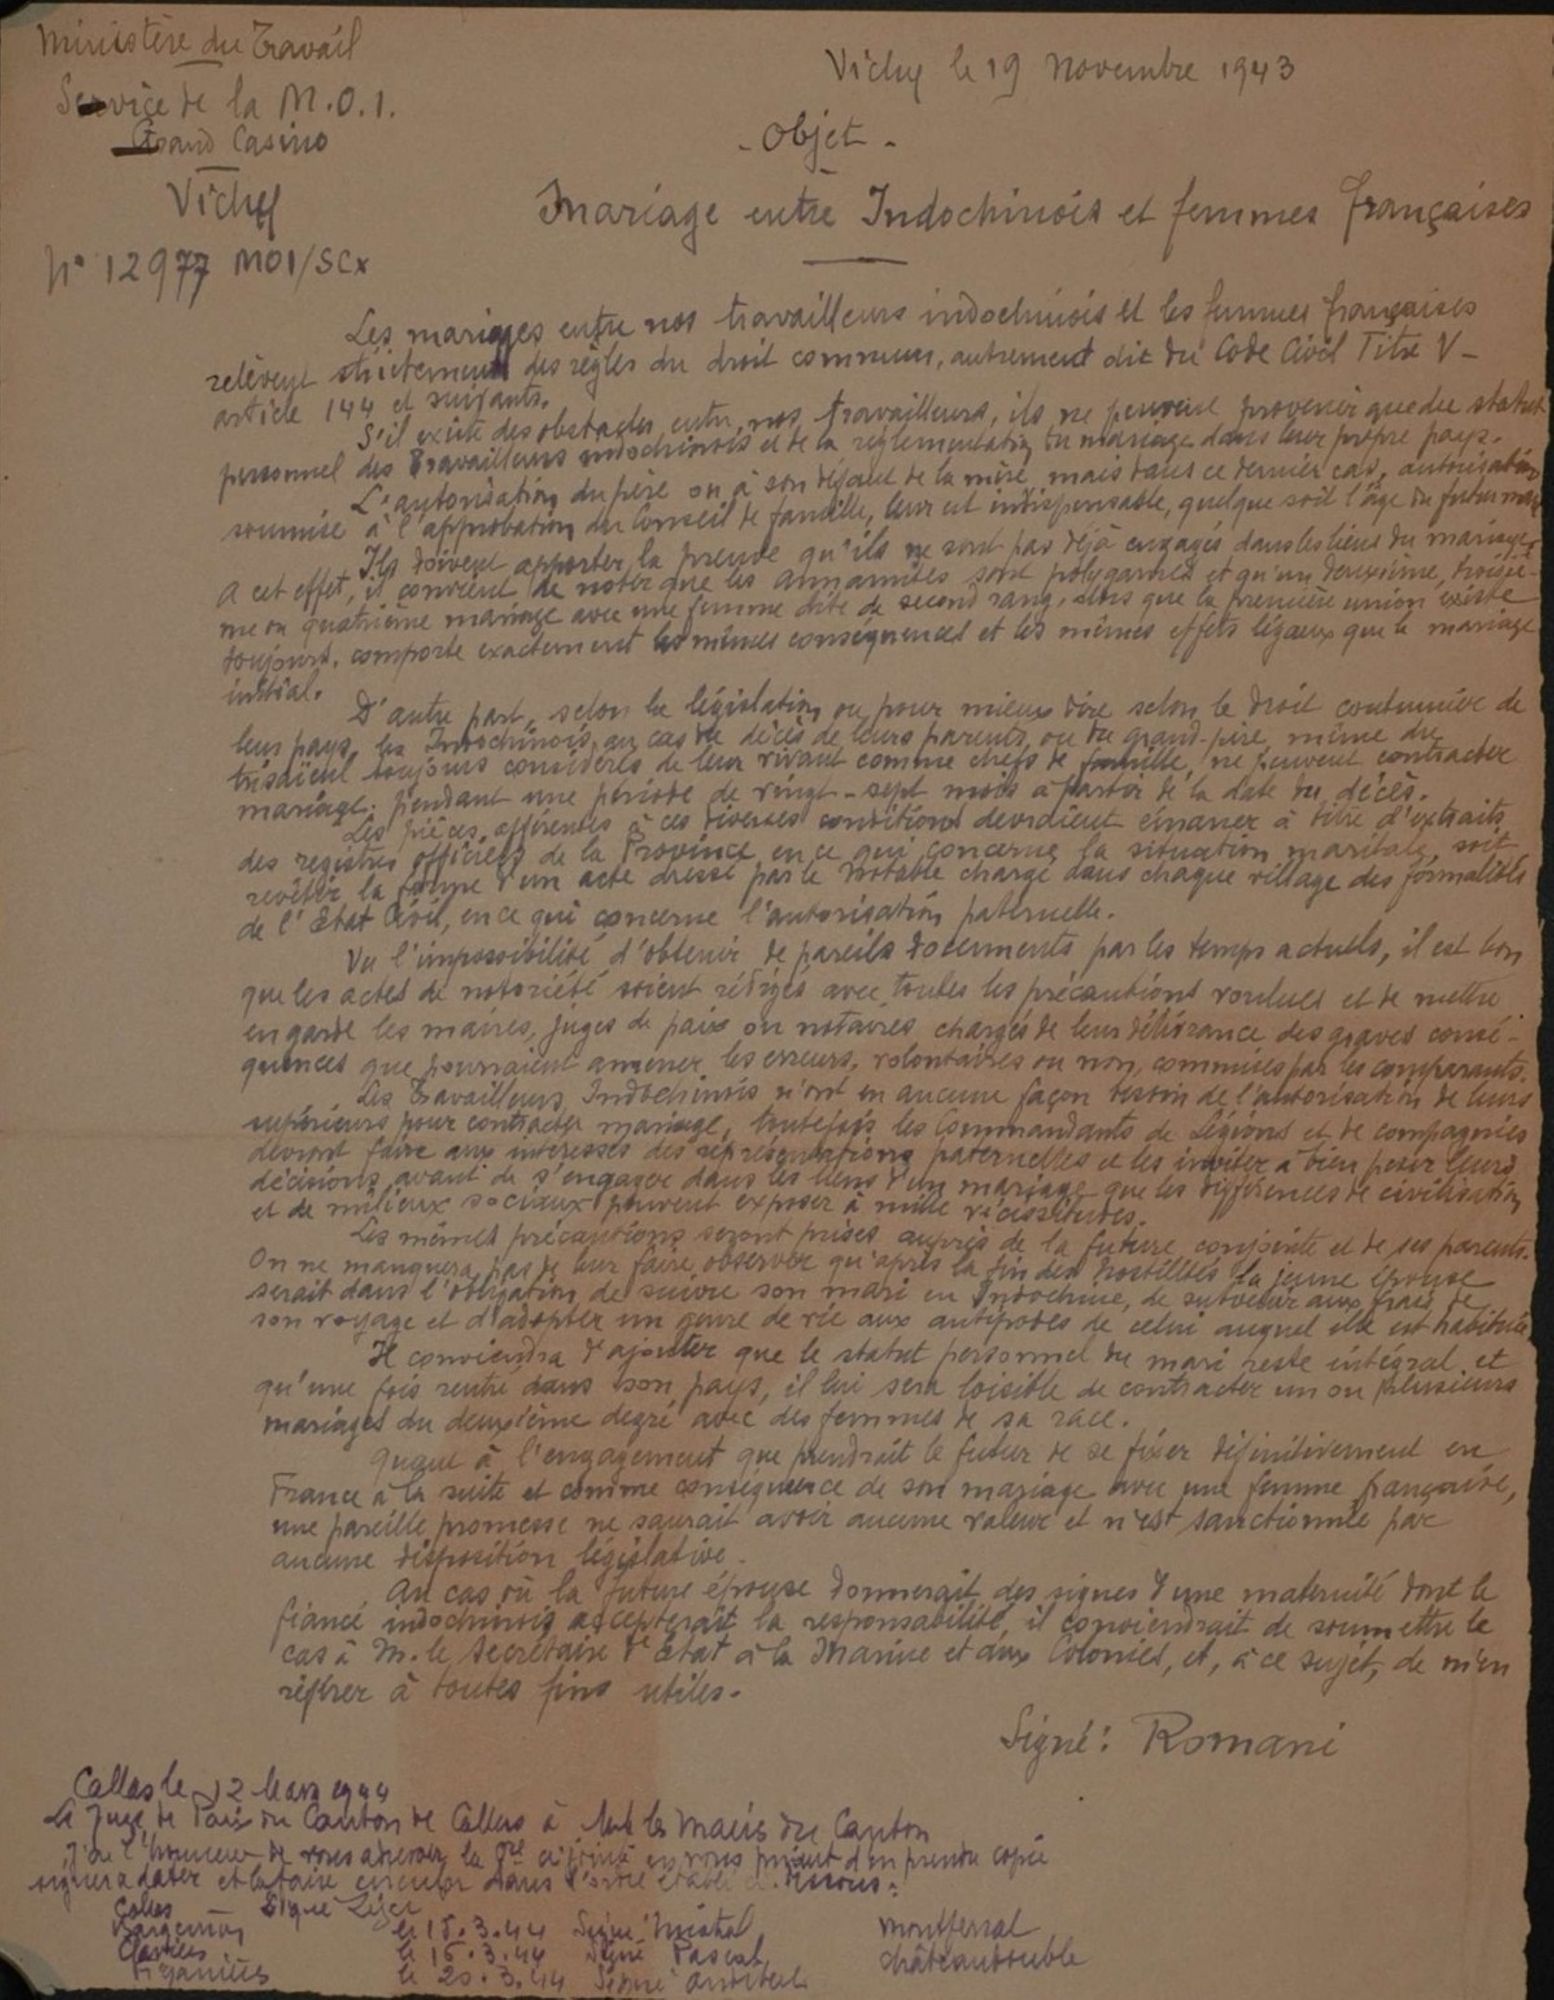 Ministère du Travail
Service de la M.O.I.
Grand Casino
Vichy
N° 12977 MOI/SCx
Vichy le 19 Novembre 1943
- Objet -
Mariage entre Indochinois et femmes françaises
Les mariages entre nos travailleurs indochinois et les femmes françaises
relèvent strictement des règles du droit commun, autrement dit du Code Civil Titre V -
article 144 et suivants.
S'il existe des obstacles entre nos travailleurs, ils ne peuvent provenir que du statut
personnel des Travailleurs indochinois et de la règlementation du mariage dans leur propre pays.
L'autorisation du père ou à son défaut de la mère, mais dans ce dernier cas, autorisation
soumise à l'approbation du Conseil de famille, leur est indispensable, quelque soit l'âge du futur mari
Ils doivent apporter la preuve qu'ils ne sont pas déjà engagés dans les liens du mariage.
A cet effet, il convient de noter que les annamites sont polygames et qu'un deuxième, troisiè-
me ou quatrième mariage avec une femme dite de second rang, alors que la première union existe
toujours, comporte exactement les mêmes conséquences et les mêmes effets légaux que le mariage
initial.
D'autre part, selon la législation ou pour mieux dire selon le droit coutumier de
leur pays, les Indochinois, au cas de décès de leurs parents, ou du grand-père, même du
trisaïeul toujours considérés de leur vivant comme chefs de famille, ne peuvent contracter
mariage pendant une période de vingt-sept mois à partir de la date du décès.
Les pièces afférentes à ces diverses conditions devraient émaner à titre d'extraits
des registres officiels de la Province en ce qui concerne la situation maritale, soit
revêtir la forme d'un acte dressé par le Notable chargé dans chaque village des formalités
de l'Etat Civil, en ce qui concerne l'autorisation paternelle.
Vu l'impossibilité d'obtenir de pareils documents par les temps actuels, il est bon
que les actes de notoriété soient rédigés avec toutes les précautions voulues et de mettre
en garde les maires, juges de paix ou notaires chargés de leur délivrance des graves consé-
quences que pourraient amener les erreurs, volontaires ou non, commises par les comparants.
Les Travailleurs Indochinois n'ont en aucune façon besoin de l'autorisation de leurs
supérieurs pour contracter mariage, toutefois les Commandants de Légions et de compagnies
devront faire aux intéressés des représentations paternelles et les inviter à bien peser leurs
décisions avant de s'engager dans les liens d'un mariage que les différences de civilisation
et de milieux sociaux peuvent exposer à mille vicissitudes.
Les mêmes précautions seront prises auprès de la future conjointe et de ses parents.
On ne manquera pas de leur faire observer qu'après la fin des hostilités la jeune épouse
serait dans l'obligation de suivre son mari en Indochine, de subvenir aux frais de
son voyage et d'adopter un genre de vie aux antipodes de celui auquel elle est habituée.
Il conviendra d'ajouter que le statut personnel du mari reste intégral et
qu'une fois rentré dans son pays, il lui sera loisible de contracter un ou plusieurs
mariages du deuxième degré avec des femmes de sa race.
Quant à l'engagement que prendrait le futur de se fixer définitivement en
France à la suite et comme conséquence de son mariage avec une femme française,
une pareille promesse ne saurait avoir aucune valeur et n'est sanctionnée par
aucune disposition législative.
Au cas où la future épouse donnerait des signes d'une maternité dont le
fiancé indochinois accepterait la responsabilité, il conviendrait de soumettre le
cas à M. le Secrétaire d'Etat à la Marine et aux Colonies, et, à ce sujet, de m'en
référer à toutes fins utiles.
Signé: Romani
Callas le 12 Mars 1944
Le Juge de Paix du Canton de Callas à les Maires du Canton
J'ai l'honneur de vous adresser la ci jointe en vous priant d'en prendre copie
signer dater et la faire circuler dans l'ordre établi ci-dessous:
Callas Signé
Bargemon le 15.3.44 Signé Mistral
Claviers le 16.3.44 Signé Pascal
Figanières le 20.3.44 Signé
Montferrat
Châteaudouble